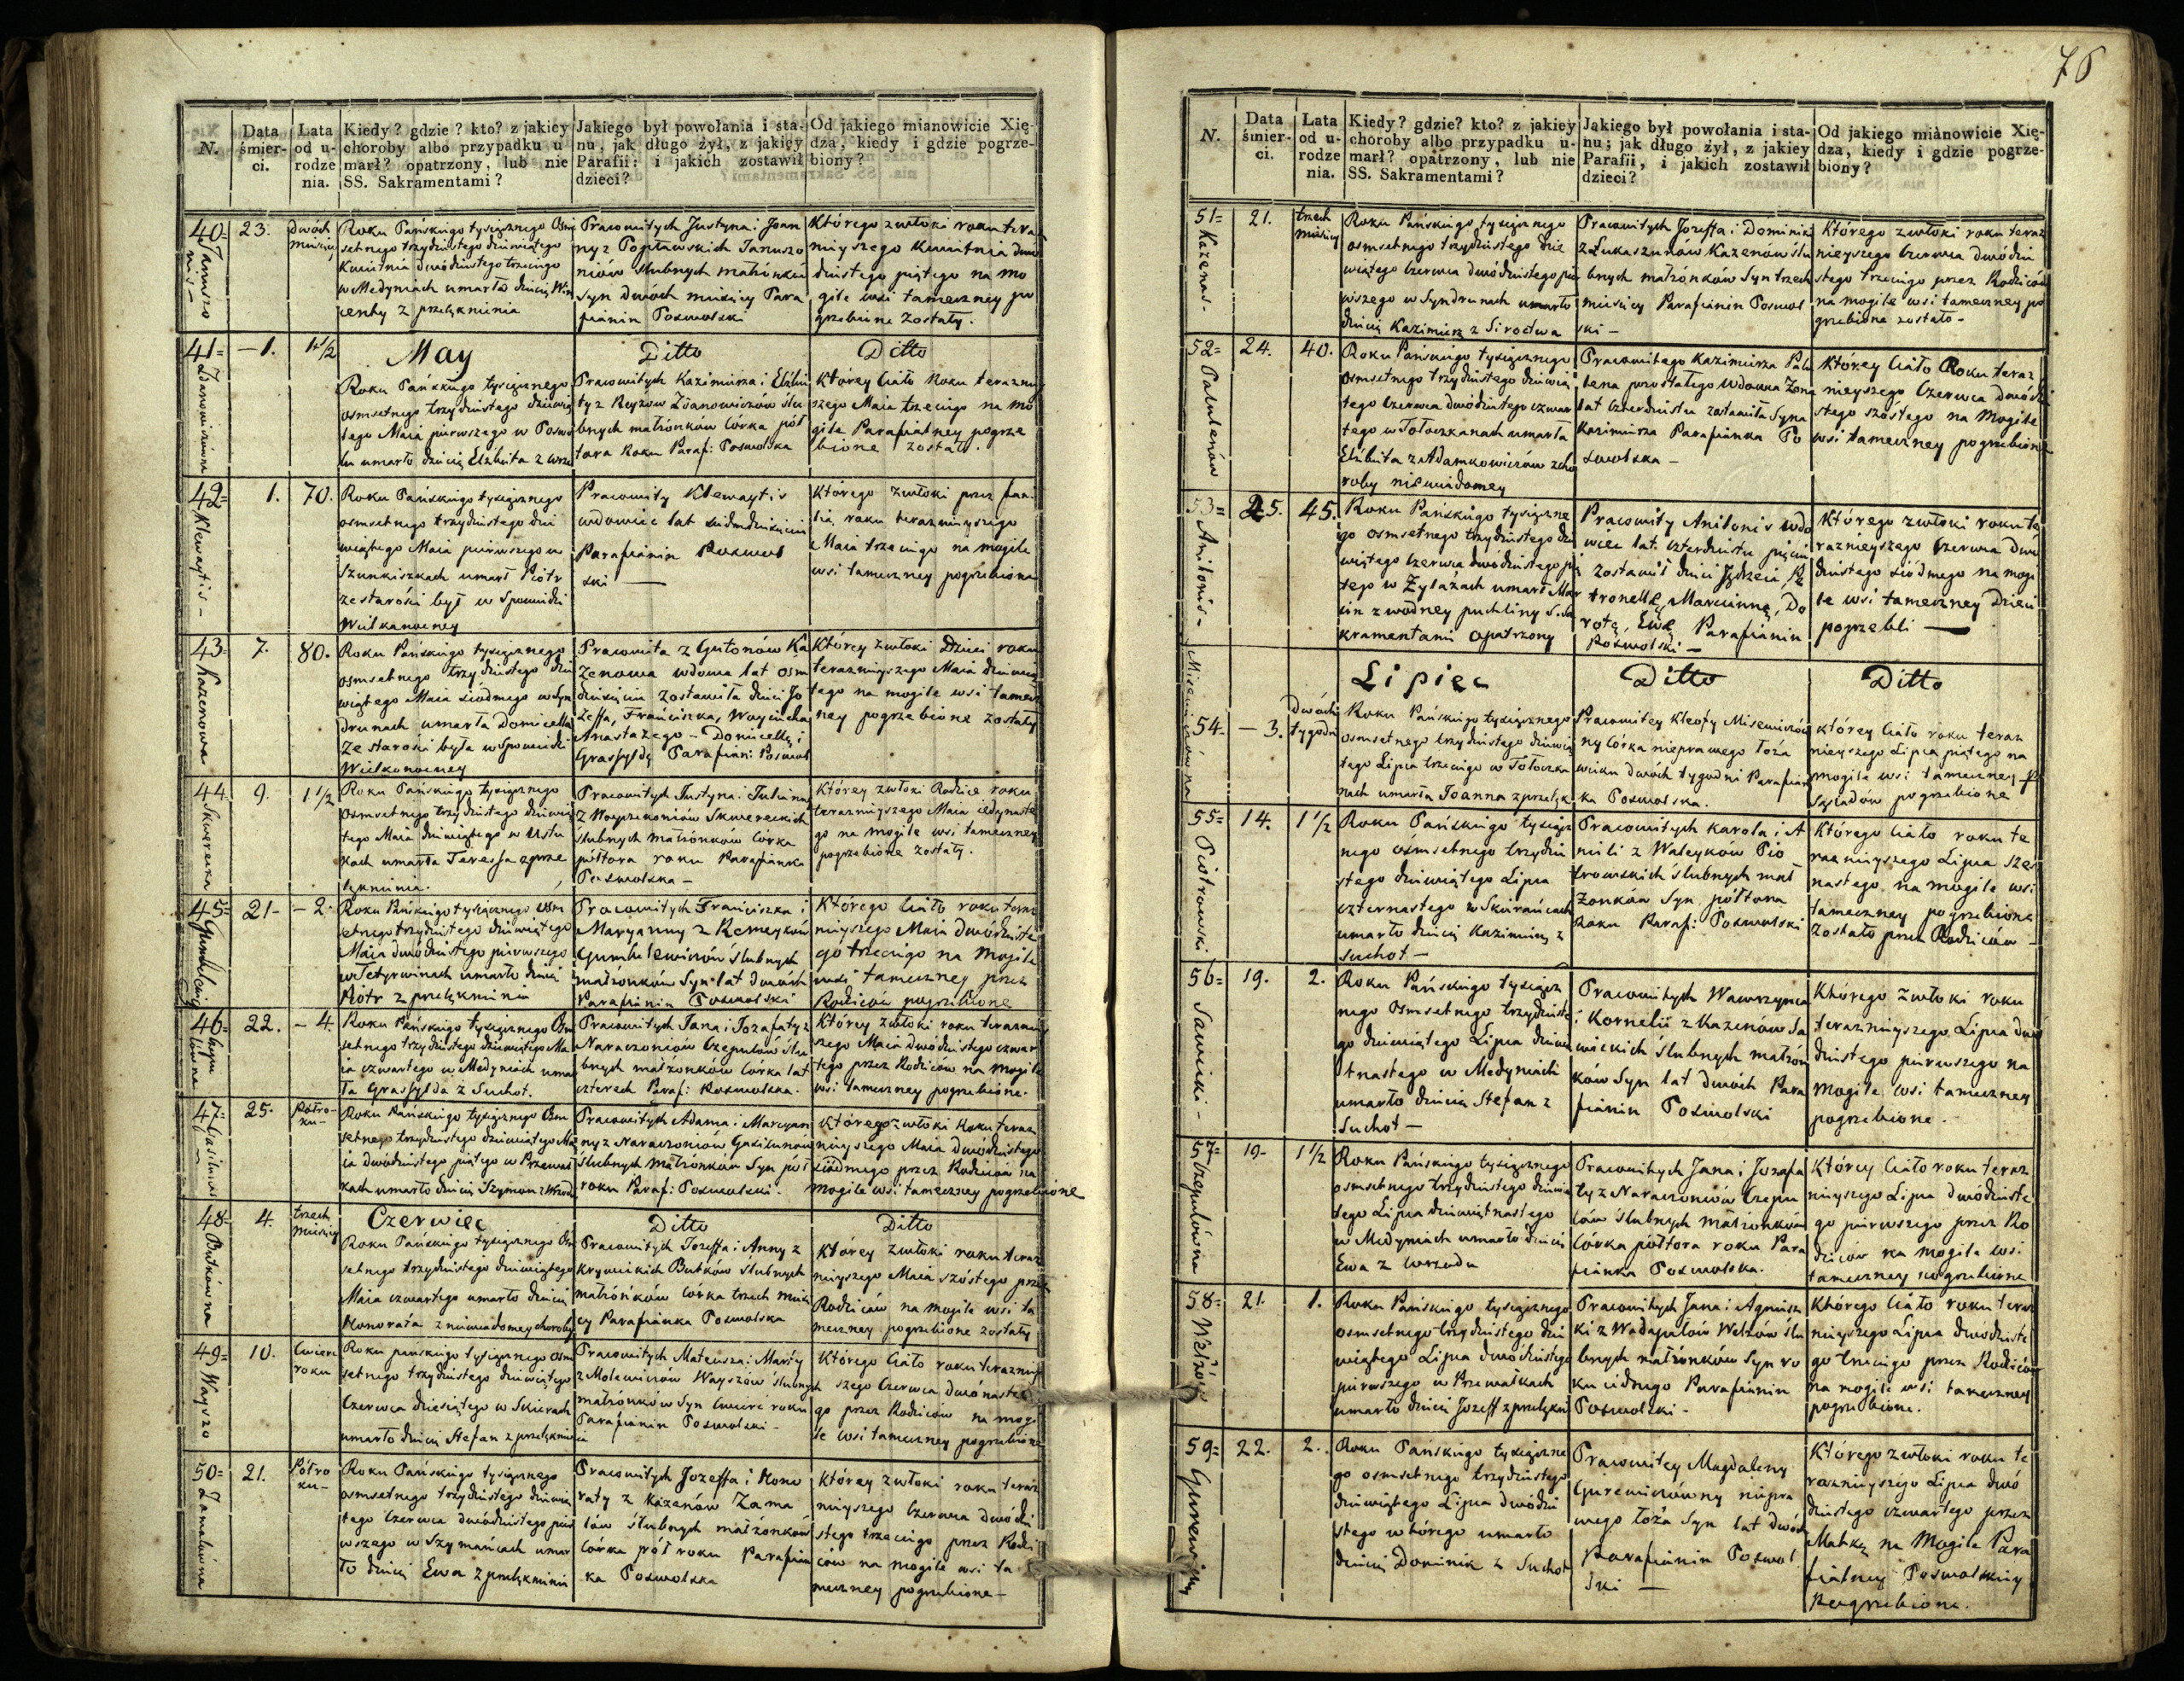 76
N.
Data śmierci.
Lata od urodzenia.
Kiedy? gdzie? kto? z jakiey
choroby albo przypadku u-
marł? opatrzony, lub nie
SS. Sakramentami?
Jakiego był powołania i sta-
nu, jak długo żył, z jakiey
Parafii; i jakich zostawił
dzieci?
Od jakiego mianowicie Xię-
dza, kiedy i gdzie pogrze-
biony?
40=
Januszonis-
23.
dwóch
miesięcy
Roku Pańskiego tysiącznego Ośm
setnego trzydziestego dziewiątego
Kwietnia dwódziestego trzeciego
w Medyniach umarło dziecię Win
centy z przelęknienia
Pracowitych Justyna i Joan
ny z Januszo
niów ślubnych małżonków
Syn dwóch miesięcy Para
fianin Poszwolski
Którego zwłoki roku tera
znieyszego Kwietnia dwó
dziestego piątego na mo
gile wsi tameczney po
grzebione zostały.
41=
Zdanowiczówna
-1.
1 1/2
May
Roku Pańskiego tysiącznego
osmsetnego trzydziestego dziewią
tego Maia pierwszego w Poszwo
lu umarło dziecię Elżbieta z wrzo
Ditto
Pracowitych Kazimierza i Elżbie
ty z Zdanowiczów ślu
bnych małżonków Córka pół
tora Roku Paraf: Poszwolska
Ditto
Którey Ciało Roku teraźniey
szego Maia trzeciego na mo
gile Parafialney pogrze
bione zostało.
42=
Klewaytis-
1.
70.
Roku Pańskiego tysiącznego
osmsetnego trzydziestego dzie
wiątego Maia pierwszego w
Szunkiszkach umarł Piotr
ze starości był w Spowiedzi
Wielkanocney
Pracowity Klewaytis
wdowiec lat siedmdziesiąt
Parafianin Poszwol
ski —
Którego zwłoki przez
roku teraznieyszego
Maia trzeciego na mogile
wsi tameczney pogrzebiona
43=
Kazenowa
7.
80.
Roku Pańskiego tysiącznego
osmsetnego trzydziestego dzie
wiątego Maia siódmego w Syn
drunach umarła Domicella
Ze starości była w Spowiedzi
Wielkonocney
Pracowita z Gutonów Ka
zenowa wdowa lat osm
dziesiąt zostawiła dzieci Jó
zeffa, Franciszka, Woyciecha
Anastazego - Domicellę i
Grassyldę Parafian: Poszwol
Którey zwłoki Dzieci roku
teraznieyszego Maia dziewią
tego na mogile wsi tamecz
ney pogrzebione zostały
44
Skwerecka
9.
1 1/2
Roku Pańskiego tysiącznego
osmsetnego trzydziestego dziewią
tego Maia dziewiątego w Ustu
kach umarła Teressa z prze
lęknienia.
Pracowitych Justyna i Julianny
z Skwereckich
ślubnych małżonków Córka
półtora roku Parafianka
Poszwolska -
Którey zwłoki Rodzice roku
teraznieyszego Maia iedynaste
go na mogile wsi tameczney
pogrzebione zostały.
45=
21-
-2.
Roku Pańskiego tysiącznego osm
setnego trzydziestego dziewiątego
Maia dwódziestego pierwszego
w Tetyrwinach umarło dziecię
Piotr z przelęknienia
Pracowitych Franciszka i
Maryanny z Remeyków
Gumbulewiczów ślubnych
małżonków Syn lat dwóch
Parafianin Poszwolski
Którego Ciało roku tera
znieyszego Maia dwódzieste
go trzeciego na mogile
wsi tameczney przez
Rodziców pogrzebione
46=
Czepulówna
22.
-4.
Roku Pańskiego tysiącznego Osm
setnego trzydziestego dziewiątego Ma
ia czwartego w Medyniach umar
ła Grassylda z Suchot.
Pracowitych Jana i Jozafaty z
Naraczoniów Czepulów ślu
bnych małżonków Corka lat
czterech Paraf: Poszwolska.
Którey zwłoki roku teraznie
szego Maia dwódziestego czwar
tego przez Rodziców na mogile
wsi tameczney pogrzebione.
47=
Gasiunas
25.
Półro-
ku-
Roku Pańskiego tysiącznego Osm
setnego trzydziestego dziewiątego Ma
ia dwódziestego piątego w Przewał
kach umarło dziecię Szymon z Wrzod
Pracowitych Adama i Maryan
ny z Naraczoniów Gasiunów
ślubnych małżonków Syn pół
roku Paraf: Poszwolski.
Którego zwłoki Roku teraz
nieyszego Maia dwódziestego
siódmego przez Rodziców na
mogile wsi tameczney pogrzebione
48=
Butkówna
4.
trzech
miesięcy
Czerwiec
Roku Pańskiego tysiącznego Osm
setnego trzydziestego dziewiątego
Maia czwartego umarło dziecię
Honorata z niewiadomey choroby
Ditto
Pracowitych Jozeffa i Anny z
Krywickich Butków ślubnych
małżonków Córka trzech miesię
cy Parafianka Poszwolska
Ditto
Którey zwłoki roku teraz
nieyszego Maia szóstego przez
Rodziców na mogile wsi ta
meczney pogrzebione zostały
49=
Wayszo
10.
Cwierć
roku
Roku pańskiego tysiącznego osm
setnego trzydziestego dziewiątego
Czerwca dziesiątego w Skierach
umarło dziecię Stefan z przelęknienia
Pracowitych Mateusza i Marty
z Molewiczów Wayszów ślubnych
małżonków Syn Cwierć roku
Parafianin Poszwolski -
Którego Ciało roku teraznie
szego Czerwca dwónaste
go przez Rodziców na mogi
le wsi tameczney pogrzebione
50=
Zamalówna
21.
Półro
ku-
Roku Pańskiego tysiącznego
osmsetnego trzydziestego dziewią
tego Czerwca dwódziestego pier
wszego w Szymańcach umar
ło dziecię Ewa z przelęknienia
Pracowitych Jozeffa i Hono
raty z Kazenów Zama
lów ślubnych małżonków
Córka pół roku Parafian
ka Poszwolska
Którey zwłoki roku teraz
nieyszego Czerwca dwódzie
stego trzeciego przez Rodzi
ców na mogile wsi ta
meczney pogrzebione-
N.
Data śmierci.
Lata od urodzenia.
Kiedy? gdzie? kto? z jakiey
choroby albo przypadku u-
marł? opatrzony, lub nie
SS. Sakramentami?
Jakiego był powołania i sta-
nu; jak długo żył, z jakiey
Parafii, i jakich zostawił
dzieci?
Od jakiego mianowicie Xię-
dza, kiedy i gdzie pogrze-
biony?
51=
Kazenas-
21.
trzech
miesięcy
Roku Pańskiego tysiącznego
osmsetnego trzydziestego dzie
wiątego Czerwca dwódziestego pier
wszego w Syndrunach umarło
dziecię Kazimierz z Siroctwa
Pracowitych Jozeffa i Dominik
z Łukaszunów Kazenów ślu
bnych małżonków Syn trzech
miesięcy Parafianin Poszwol
ski-
Którego zwłoki roku teraz
nieyszego Czerwca dwódzie
stego trzeciego przez Rodziców
na mogile wsi tameczney po
grzebione zostało-
52=
Patulenów
24.
40.
Roku Pańskiego tysiącznego
Osmsetnego trzydziestego dziewią
tego Czerwca dwódziestego czwar
tego w Tołoczkanach umarła
Elżbieta z Adamkowiczów z cho
roby niewiadomey
Pracowitego Kazimierza Patu
lena pozostałego Wdowca Żona
lat Czterdziestu zostawiła Syna
Kazimierza Parafianka Po
szwolska-
Którey Ciało Roku teraz
nieyszego Czerwca dwódzie
stego szóstego na Mogile
wsi tameczney pogrzebione
53=
Anitonis-
25.
45.
Roku Pańskiego tysiączne
go osmsetnego trzydziestego dzie
wiątego Czerwca dwódziestego pią
tego w Żylażach umarł Mar
cin z wodney puchliny S. Sa
kramentami opatrzony
Pracowity Anitonis wdo
wiec lat czterdziestu pięciu
zostawił dzieci Jędrzeia, Pe
tronellę, Marciannę, Do
rotę, Ewę Parafianin
Poszwolski-
Którego zwłoki roku te
raznieyszego Czerwca dwó
dziestego siódmego na mogi
le wsi tameczney Dzieci
pogrzebli —
54-
Misewiczówna
-3.
Dwóch
tygodni
Lipiec
Roku Pańskiego tysiącznego
osmsetnego trzydziestego dziewią
tego Lipca trzeciego w Tołoczka
nach umarła Joanna z przelęk
Ditto
Pracowitey Kleofy Misewiczów
ny Córka nieprawego łoża
wieku dwóch tygodni Parafian
ka Poszwolska.
Ditto
Którey Ciało roku teraz
nieyszego Lipca piątego na
mogile wsi tameczney P
Sąsiadów pogrzebione
55=
Piotrowski
14.
1 1/2
Roku Pańskiego tysiącz
nego ósmsetnego trzydzie
stego dziewiątego Lipca
czternastego w Skirańcach
umarło dziecię Kazimierz z
Suchot-
Pracowitych Karola i A
nieli z Waleyków Pio
trowskich ślubnych mał
żonków Syn półtora
Roku Paraf: Poszwolski
Którego Ciało roku te
raznieyszego Lipca szes
nastego na mogile wsi
tameczney pogrzebione
Zostało przez Rodziców-
56=
Sawicki-
19.
2.
Roku Pańskiego tysiącz
nego Osmsetnego trzydzieste
go dziewiątego Lipca dziewię
tnastego w Medyniach
umarło dziecię Stefan z
Suchot-
Pracowitych Wawrzynca
i Kornelii z Kazenów Sa
wickich ślubnych małżon
ków Syn lat dwóch Para
fianin Poszwolski
Którego zwłoki roku
teraznieyszego Lipca dwó
dziestego pierwszego na
Mogile wsi tameczney
pogrzebione.
57=
Czepulówna
19-
1 1/2
Roku Pańskiego tysiącznego
osmsetnego trzydziestego dziewią
tego Lipca dziewiętnastego
w Medyniach umarło dziecię
Ewa z wrzodu
Pracowitych Jana i Jozafa
ty z Naraczoniów Czepu
lów ślubnych małżonków
Córka półtora roku Para
fianka Poszwolska.
Którey Ciało roku teraz
nieyszego Lipca dwódzieste
go pierwszego przez Ro
dziców na mogile wsi
tameczney pogrzebione
58=
Welżów
21.
1.
Roku Pańskiego tysiącznego
osmsetnego trzydziestego dzie
wiątego Lipca dwódziestego
pierwszego w Przewałkach
umarło dziecię Jozeff z przelęknie
Pracowitych Jana i Agniesz
ki z Wadapalów Welżów ślu
bnych małżonków Syn ro
ku iednego Parafianin
Poszwolski-
Którego Ciało roku teraz
nieyszego Lipca dwódzieste
go trzeciego przez Rodziców
na mogile wsi tameczney
pogrzebione.
59=
22.
2.
Roku Pańskiego tysiączne
go osmsetnego trzydziestego
dziewiątego Lipca dwódzie
stego wtórego umarło
dziecię Dominik z Suchot
Pracowitey Magdaleny
Gurewiczówny niepra
wego łoża Syn lat dwóch
Parafianin Poszwol
ski —
Którego zwłoki roku te
raznieyszego Lipca dwó
dziestego czwartego przez
Matkę na Mogile Para
fialney Poszwolskiey
Pogrzebione.